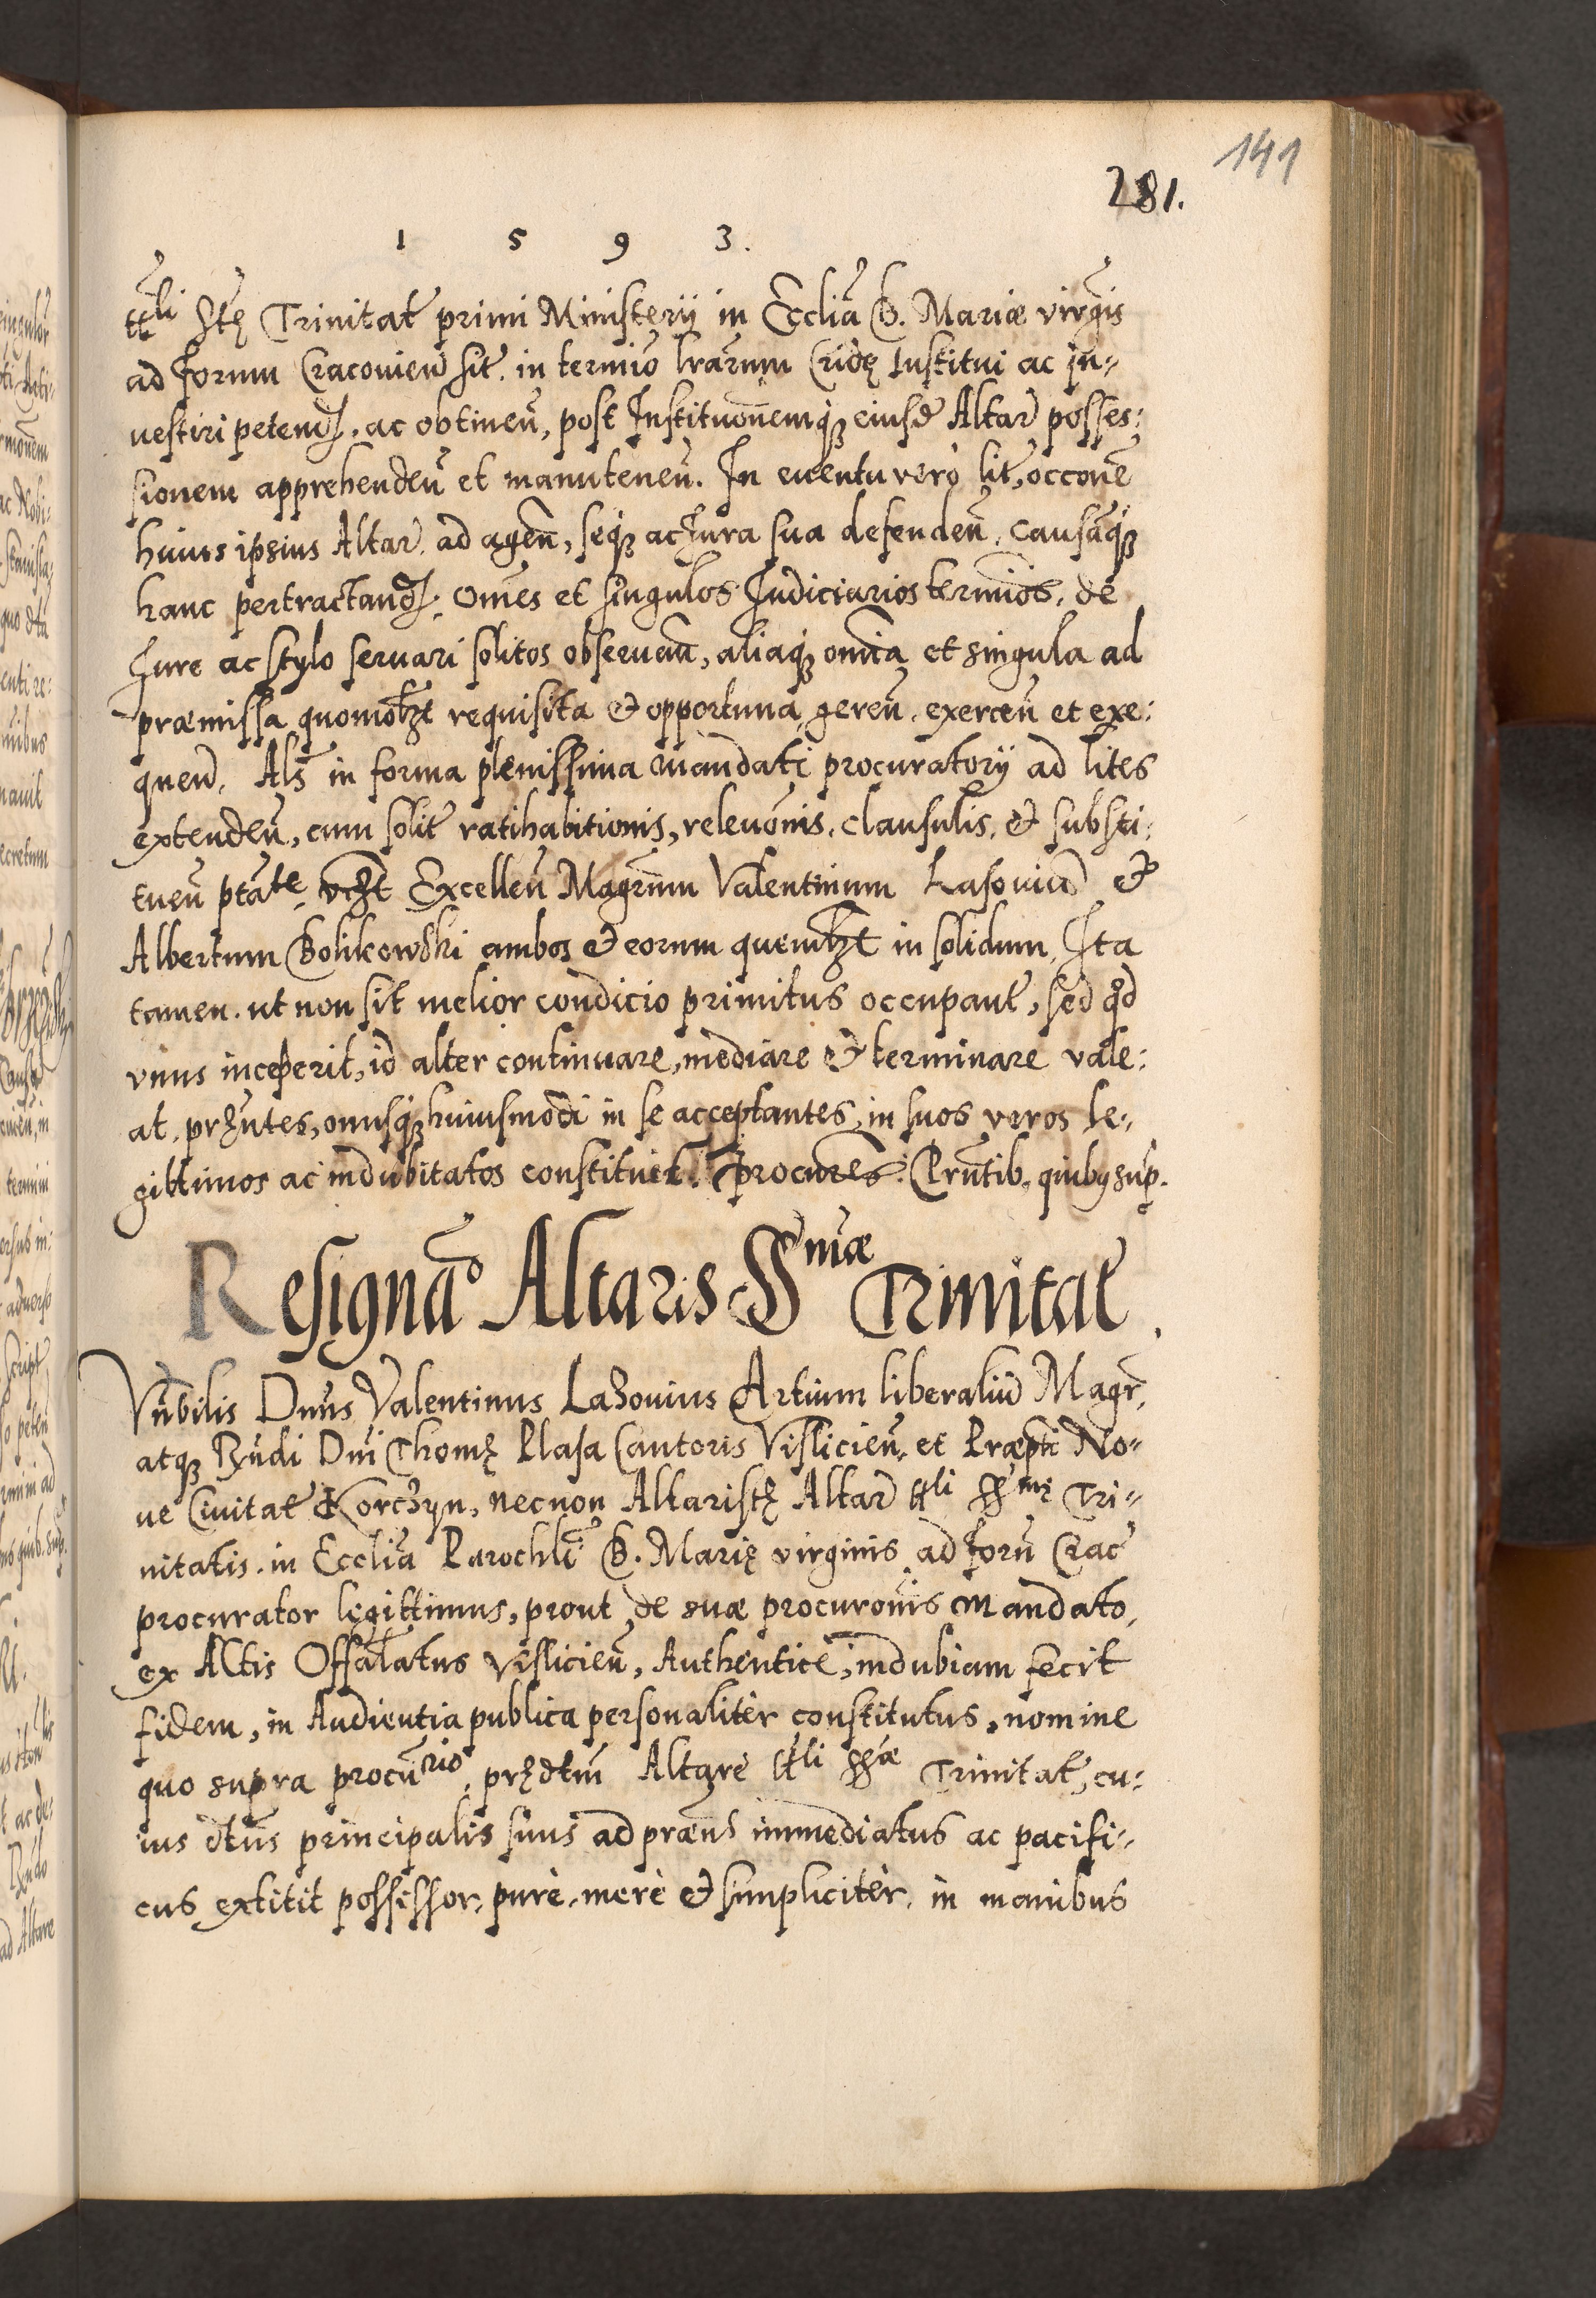 141
281.
1 5 9 3.
ttli Stę Trinitat primi Ministerij in Ecclia B. Mariæ virgis
ad forum Cracovien sit. in termio lrarum Cridę Institui ac in-
vestiri peten, ac obtinen, post Institutionemq eiusd Altar posses:
sionem apprehenden et manutenen. In euentu vero lit, occone
huius ipsius Altar. ad agen, seq ac Jura sua defenden, causaq
hanc pertractand, omes et singulos Judiciarios termios, de
Jure ac stylo servari solitos observan, aliaq omia et singula ad
præmissa quomolzt requisita & opportuna geren, exercen et exe:
quen. Als in forma plenissima mandati procuratorij ad lites
extenden, cum solit ratihabitionis, relevonis, clausulis, & substi:
tuen ptate, vzt Excellen Magrum Valentinum Lasovium &
Albertum Bolikowski ambos & eorum quemlzt in solidum, Ita
tamen. ut non sit melior condicio primitus occupant, sed qd
unus inceperit, id alter continuare, mediare & terminare vale:
at, prntes, onusq huiusmodi in se acceptantes, in suos veros le-
gittimos ac indubitatos constituit Procures. Prntib. quibus sup.
Resignao Altaris SSmæ Trinitat.
Vnbilis Dnus Valentinus Lasovius Artium liberaliu Magr,
atq Rndi Dni Thomę Plasa Cantoris Vislicien, et Præpti No-
ve Civitat Korczyn, necnon Altaristę Altar ttli SSmę Tri-
nitatis. in Ecclia Parochli B. Marię virginis ad foru Crac
procurator legittimus, prout de suæ procuronis Mandato,
ex Actis Offalatus Vislicien, Authentice, indubiam fecit
fidem, in Audientia publica personaliter constitutus, nomine
quo supra procurio, prędtm Altare ttli SSæ Trinitat, cu:
ius dtus principalis suus ad præns immediatus ac pacifi-
cus extitit possessor, pure, mere & simpliciter, in manibus